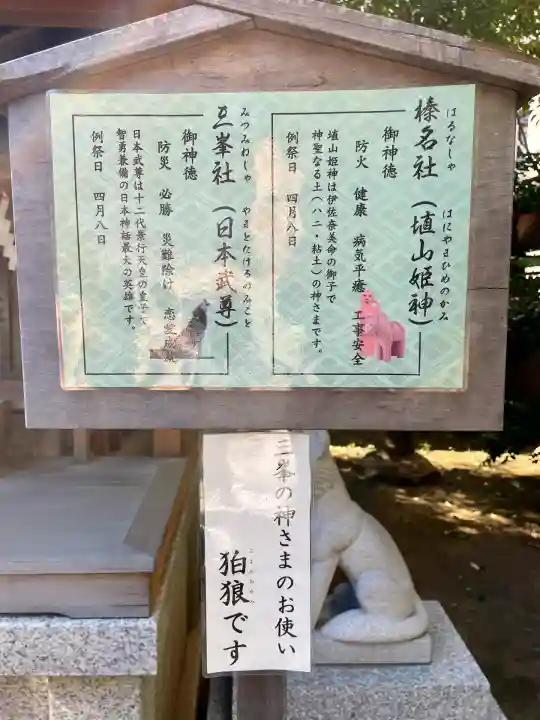 はるなしゃ はにやまひめのかみ
榛名社(埴山姫神)
御神徳
防火 健康 病気平癒 工事安全
埴山姫神は伊佐奈美命の御子で
神聖なる土(ハニ・粘土)の神さまです。
例祭日 四月八日
みつみねしゃ やまとたけるのみこと
三峯社(日本武尊)
御神徳
防災 必勝 災難除け 恋愛成就
日本武尊は十二代景行天皇の皇子で
智勇兼備の日本神話最大の英雄です。
例祭日 四月八日
三峯の神さまのお使い
こまおおかみ
狛狼です